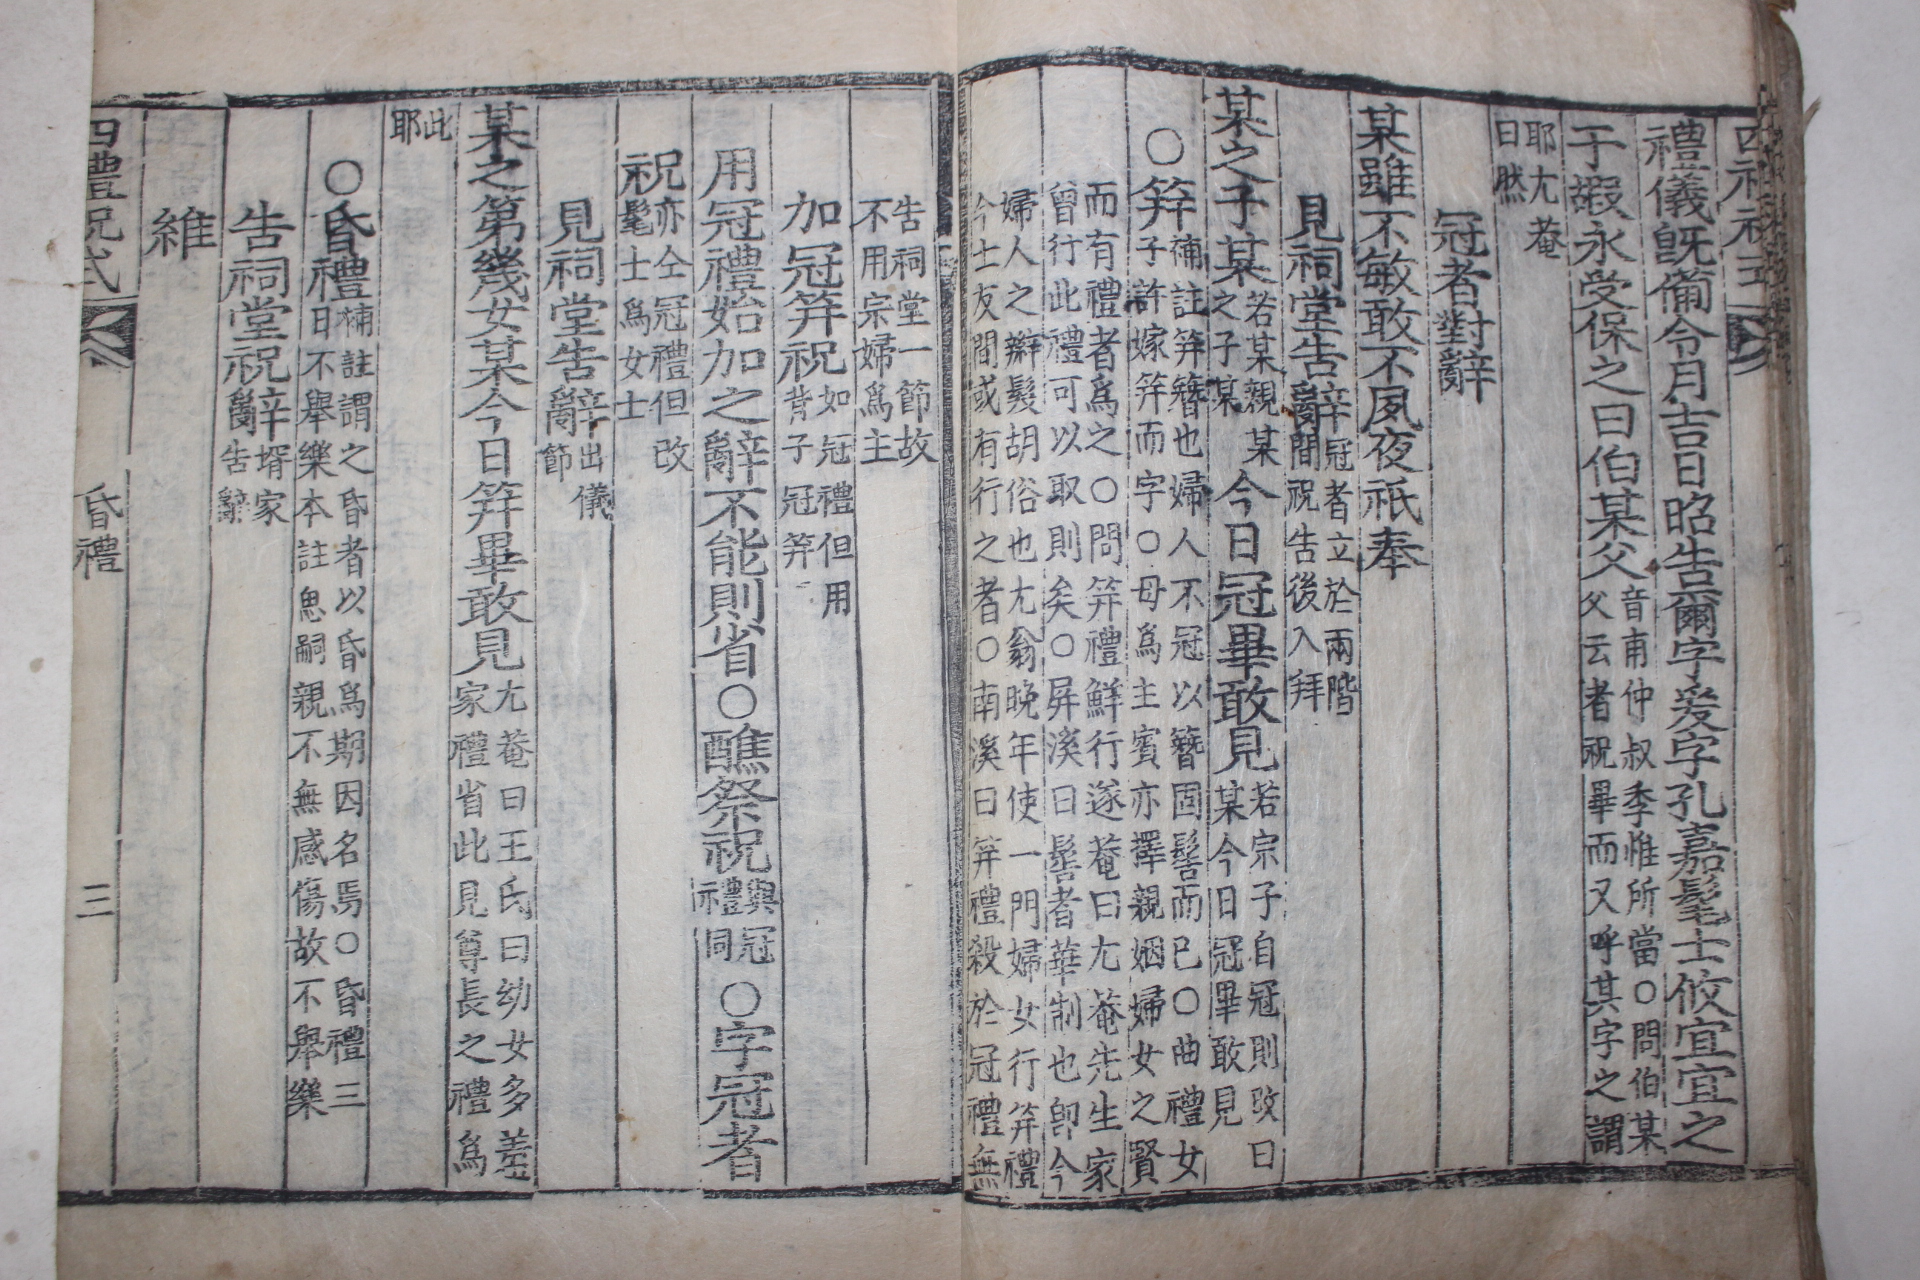 禮儀旣備令月吉日昭告爾字爰字孔嘉髦士攸宜宜之
于嘏永受保之曰伯某父音甫仲叔季惟所當○問伯某
父云者祝畢而又呼其字之謂
耶尤菴
曰然
冠者對辭
某雖不敏敢不夙夜祇奉
見祠堂告辭冠者立於兩階
間祝告後入拜
某之子某若某親某
之子某今日冠畢敢見若宗子自冠則改曰
某今日冠畢敢見
○笄補註笄簪也婦人不冠以簪固髻而已○曲禮女
子許嫁笄而字○母爲主賓亦擇親姻婦女之賢
而有禮者爲之○問笄禮鮮行遂菴曰尤菴先生家
曾行此禮可以取則矣○屛溪曰髻者華制也卽今
婦人之辮髮胡俗也尤翁晚年使一門婦女行笄禮
今士友間或有行之者○南溪曰笄禮殺於冠禮無
告祠堂一節故
不用宗婦爲主
加冠笄祝如冠禮但用
背子冠笄
用冠禮始加之辭不能則省○醮祭祝與冠
禮同○字冠者
祝亦仝冠禮但改
髦士爲女士
見祠堂告辭出儀
節
某之第幾女某今日笄畢敢見尤菴曰王氏曰幼女多羞
家禮省此見尊長之禮爲
此
耶
○昏禮補註謂之昏者以昏爲期因名焉○昏禮三
日不舉樂本註思嗣親不無感傷故不舉樂
告祠堂祝辭壻家
告辭
維
四禮祝式
昏禮
三